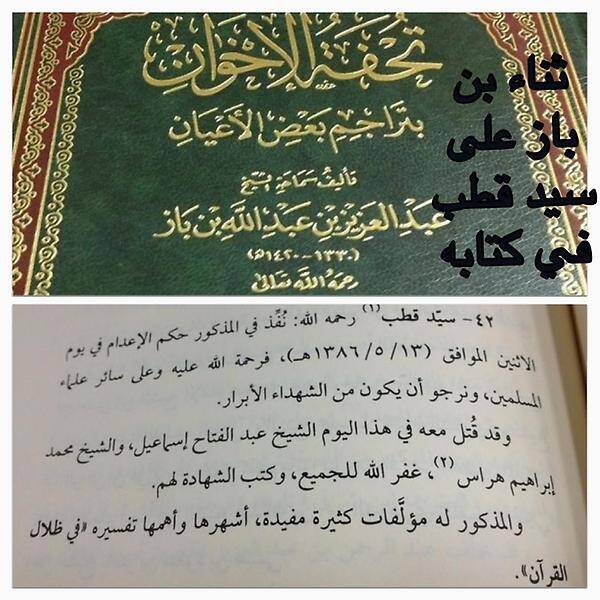 تحفة الإخوان
بتراجم بعض الأعيان
تأليف سماحة الشيخ
عبد العزيز بن عبد الله بن باز
(١٣٣٠-١٤٢٠هـ)
رحمه الله تعالى
ثناء بن
باز على
سيد قطب
في كتابه
٤٢- سيّد قطب(١) رحمه الله: نُفِّذ في المذكور حكم الإعدام في يوم
الاثنين الموافق (١٣/ ٥/ ١٣٨٦هـ)، فرحمة الله عليه وعلى سائر علماء
المسلمين، ونرجو أن يكون من الشهداء الأبرار.
وقد قُتل معه في هذا اليوم الشيخ عبد الفتاح إسماعيل، والشيخ محمد
إبراهيم هراس(٢)، غفر الله للجميع، وكتب الشهادة لهم.
والمذكور له مؤلَّفات كثيرة مفيدة، أشهرها وأهمها تفسيره «في ظلال
القرآن».